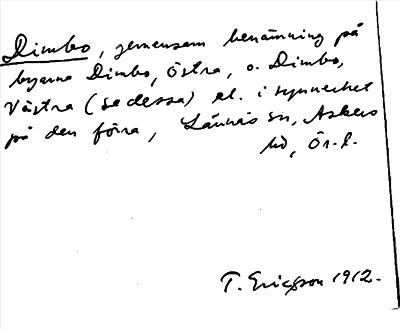 Dimbo, gemensam benämning på
byarna Dimbo, Östra, o. Dimbo,
Västra (se dessa) el. i synnerhet
på den förra, Lännäs sn, Askers
hd, Ör. l.
T. Ericsson 1912.